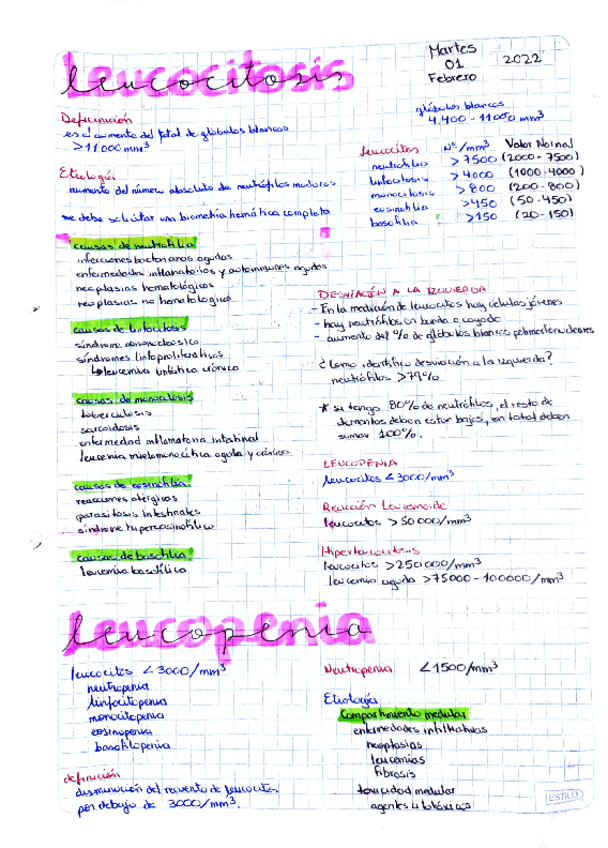 Leucocitosis
Martes
01
Febrero
2022
Definición
es el aumento del total de glóbulos blancos
>11000 mm³
Etiología
aumento del número absoluto de neutrófilos maduros
se debe solicitar una biometría hemática completa
glóbulos blancos
4.400 - 11000 mm³
leucocitos N°/mm³ Valor Normal
neutrofilia >7500 (2000 - 7500)
linfocitosis >4000 (1000 - 4000)
monocitosis >800 (200 - 800)
eosinofilia >450 (50 - 450)
basofilia >150 (20 - 150)
causas de neutrofilia
infecciones bacterianas agudas
enfermedades inflamatorias y autoinmunes agudas
neoplasias hematológicas
neoplasias no hematologicas
causas de linfocitosis
síndrome mononucleosico
síndromes linfoproliferativos
↳ leucemia linfática crónica
causas de monocitosis
tuberculosis
sarcoidosis
enfermedad inflamatoria intestinal
leucemia mielomonocítica aguda y crónica
causas de eosinofilia
reacciones alérgicas
parasitosis intestinales
síndrome hipereosinofílico
causas de basofilia
leucemia basofílica
DESVIACIÓN A LA IZQUIERDA
- En la medición de leucocitos hay células jóvenes
- hay neutrófilos en banda o cayado
- aumento del % de glóbulos blancos polimorfonucleares
¿Como identifico desviación a la izquierda?
neutrófilos >79%
* si tengo 80% de neutrófilos, el resto de
elementos deben estar bajos, en total deben
sumar 100%.
LEUCOPENIA
leucocitos < 3000/mm³
Reacción Leucemoide
leucocitos > 50000/mm³
Hiperleucocitosis
leucocitos > 250000/mm³
leucemia aguda >75000 - 100000/mm³
Leucopenia
leucocitos < 3000/mm³
neutropenia
linfocitopenia
monocitopenia
eosinopenia
basofilopenia
definición
disminución del recuento de leucocitos
por debajo de 3000/mm³.
Neutropenia <1500/mm³
Etiología
Compartimiento medular
enfermedades infiltrativas
neoplasias
leucemias
fibrosis
toxicidad medular
agentes citotóxicos
ESTILO